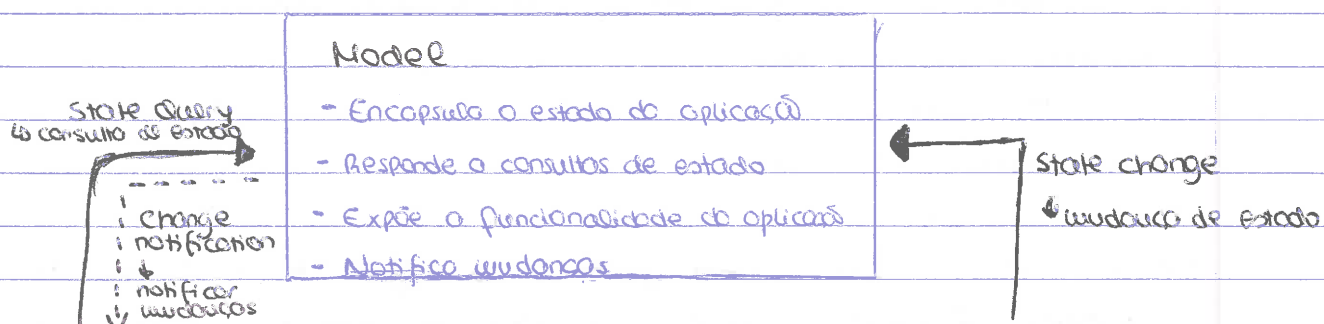 Model
- Encapsula o estado da aplicação
- Responde a consultas de estado
- Expõe a funcionalidade da aplicação
- Notifica mudanças
State Query
↳ consulta de estado
change
notification
↓
notificar
mudanças
State change
↓ mudança de estado